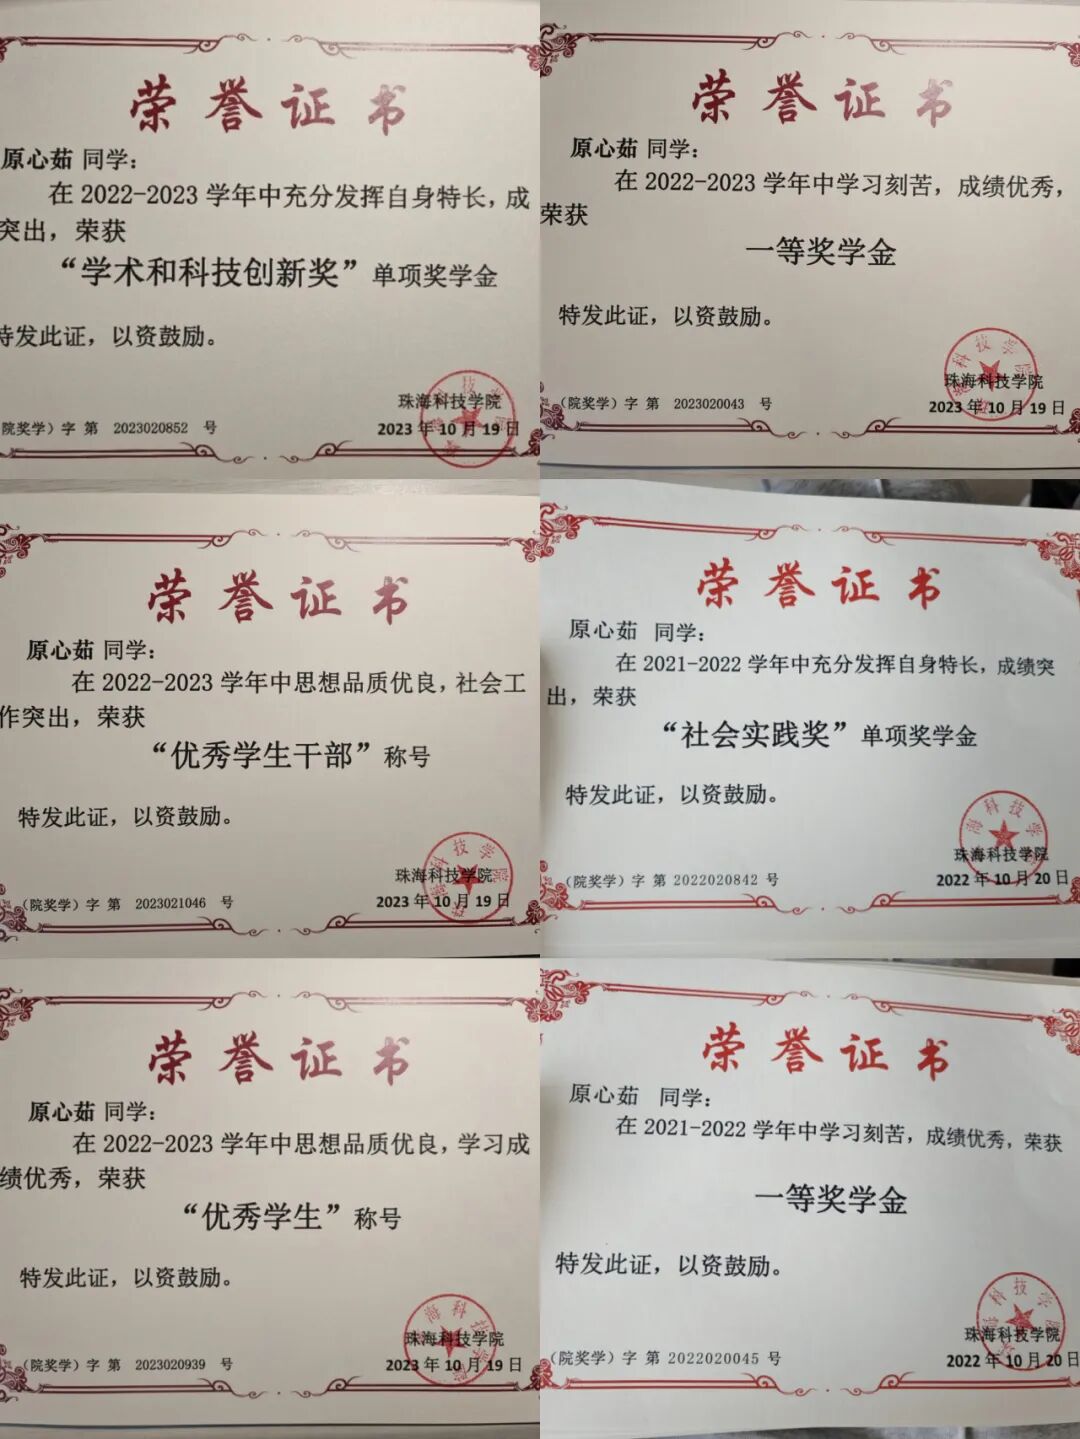 荣誉证书
原心茹 同学：
在 2022-2023 学年中充分发挥自身特长，成
突出，荣获
“学术和科技创新奖”单项奖学金
特发此证，以资鼓励。
珠海科技学院
院奖学）字 第 2023020852 号
2023 年 10 月 19 日
荣誉证书
原心茹 同学：
在 2022-2023 学年中学习刻苦，成绩优秀，
荣获
一等奖学金
特发此证，以资鼓励。
珠海科技学院
（院奖学）字 第 2023020043 号
2023 年 10 月 19 日
荣誉证书
原心茹 同学：
在 2022-2023 学年中思想品质优良，社会工
作突出，荣获
“优秀学生干部”称号
特发此证，以资鼓励。
珠海科技学院
（院奖学）字 第 2023021046 号
2023 年 10 月 19 日
荣誉证书
原心茹 同学：
在 2021-2022 学年中充分发挥自身特长，成绩突
出，荣获
“社会实践奖”单项奖学金
特发此证，以资鼓励。
珠海科技学院
（院奖学）字 第 2022020842 号
2022 年 10 月 20 日
荣誉证书
原心茹 同学：
在 2022-2023 学年中思想品质优良，学习成
绩优秀，荣获
“优秀学生”称号
特发此证，以资鼓励。
珠海科技学院
（院奖学）字 第 2023020939 号
2023 年 10 月 19 日
荣誉证书
原心茹 同学：
在 2021-2022 学年中学习刻苦，成绩优秀，荣获
一等奖学金
特发此证，以资鼓励。
珠海科技学院
（院奖学）字 第 2022020045 号
2022 年 10 月 20 日